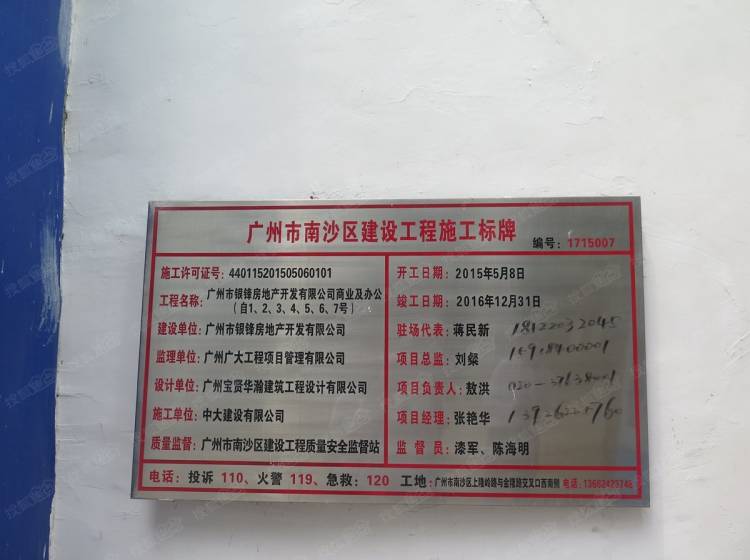 广州市南沙区建设工程施工标牌
编号：1715007
施工许可证号：440115201505060101
工程名称：广州市银锋房地产开发有限公司商业及办公
（自1、2、3、4、5、6、7号）
建设单位：广州市银锋房地产开发有限公司
监理单位：广州广大工程项目管理有限公司
设计单位：广州宝贤华瀚建筑工程设计有限公司
施工单位：中大建设有限公司
质量监督：广州市南沙区建设工程质量安全监督站
开工日期：2015年5月8日
竣工日期：2016年12月31日
驻场代表：蒋民新 18122032045
项目总监：刘粲
项目负责人：敖洪
项目经理：张艳华
监督员：漆军、陈海明
电话：投诉 110、火警 119、急救：120 工地：广州市南沙区上隆岭路与金隆路交叉口西南侧 电话：